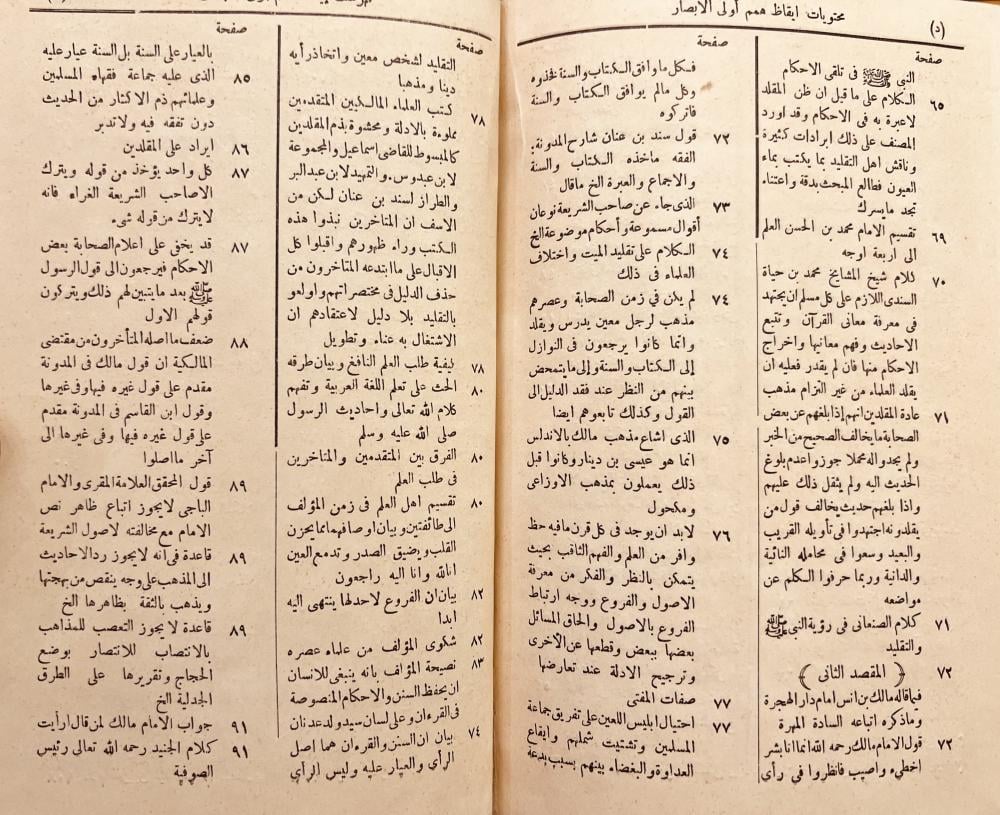 (د)
محتويات ايقاظ همم أولى الابصار
صفحة
النبي ﷺ فى تلقى الاحكام
٦٥ الكلام على ما قيل ان ظن المقلد
لاعبرة به فى الاحكام وقد اورد
المصنف على ذلك ايرادات كثيرة
وناقش اهل التقليد بما يكتب بماء
العيون فطالع المبحث بدقة واعتناء
تجد مايسرك
٦٩ تقسيم الامام محمد بن الحسن العلم
الى اربعة اوجه
٧٠ كلام شيخ المشايخ محمد بن حياة
السندى اللازم على كل مسلم ان يجتهد
فى معرفة معانى القرآن وتتبع
الاحاديث وفهم معانيها واخراج
الاحكام منها فان لم يقدر فعليه ان
يقلد العلماء من غير التزام مذهب
٧١ عادة المقلدين انهم إذا بلغهم عن بعض
الصحابة ما يخالف الصحيح من الخبر
ولم يجدوا له محملا جوزوا عدم بلوغ
الحديث اليه ولم يثقل ذلك عليهم
واذا بلغهم حديث يخالف قول من
يقلدونه اجتهدوا فى تأويله القريب
والبعيد وسعوا فى محامله النائية
والدانية وربما حرفوا الكلم عن
مواضعه
٧١ كلام الصنعانى فى رؤية النبي ﷺ
والتقليد
٧٢ ﴿ المقصد الثانى ﴾
فيما قاله مالك بن انس امام دار الهجرة
وما ذكره اتباعه السادة المهرة
٧٢ قول الامام مالك رحمه الله انما انا بشر
اخطىء واصيب فانظروا فى رأى
صفحة
فكل ما وافق الكتاب والسنة فخذوه
وكل مالم يوافق الكتاب والسنة
فاتركوه
٧٢ قول سند بن عنان شارح المدونة
الفقه ماخذه الكتاب والسنة
والاجماع والعبرة الخ ماقال
٧٣ الذى جاء عن صاحب الشريعة نوعان
أقوال مسموعة وأحكام موضوعة الخ
٧٤ الكلام على تقليد الميت واختلاف
العلماء فى ذلك
٧٤ لم يكن فى زمن الصحابة وعصرهم
مذهب لرجل معين يدرس ويقلد
وانما كانوا يرجعون فى النوازل
إلى الكتاب والسنة والى ما يتمحض
بينهم من النظر عند فقد الدليل الى
القول وكذلك تابعوهم ايضا
٧٥ الذى اشاع مذهب مالك بالاندلس
انما هو عيسى بن دينار وكانوا قبل
ذلك يعملون بمذهب الاوزاعى
ومكحول
٧٦ لابد ان يوجد فى كل قرن مافيه حظ
وافر من العلم والفهم الثاقب بحيث
يتمكن بالنظر والفكر من معرفة
الاصول والفروع ووجه ارتباط
الفروع بالاصول والحاق المسائل
بعضها ببعض وقطعها عن الاخرى
وترجيح الادلة عند تعارضها
٧٧ صفات المفتى
٧٧ احتيال ابليس اللعين على تفريق جماعة
المسلمين وتشتيت شملهم وايقاع
العداوة والبغضاء بينهم بسبب بدعة
صفحة
التقليد لشخص معين واتخاذ رأيه
دينا ومذهبا
٧٨ كتب العلماء المالكيين المتقدمين
مملوءة بالادلة ومحشوة بذم المقلدين
كالمبسوط للقاضى اسماعيل والمجموعة
لابن عبدوس. والتمهيد لابن عبد البر
والطراز لسند بن عنان لكن من
الاسف ان المتاخرين نبذوا هذه
الكتب وراء ظهورهم واقبلوا كل
الاقبال على ما ابتدعه المتاخرون من
حذف الدليل فى مختصراتهم واولعو
بالتقليد بلا دليل لاعتقادهم ان
الاشتغال به عناء وتطويل
٧٨ كيفية طلب العلم النافع وبيان طرقه
٨٠ الحث على تعلم اللغة العربية وتفهم
كلام الله تعالى واحاديث الرسول
صلى الله عليه وسلم
٨٠ الفرق بين المتقدمين والمتاخرين
فى طلب العلم
٨٠ تقسيم اهل العلم فى زمن المؤلف
الى طائفتين وبيان اوصافهما بما يحزن
القلب ويضيق الصدر وتدمع العين
انا لله وانا اليه راجعون
٨٢ بيان ان الفروع لاحد لها ينتهى اليه
ابدا
٨٢ شكوى المؤلف من علماء عصره
٨٣ نصيحة المؤلف بانه ينبغى للانسان
ان يحفظ السنن والاحكام المنصوصة
فى القرءان وعلى لسان سيد ولد عدنان
٧٤ بيان ان السنن والقرءان هما اصل
الرأى والعيار عليه وليس الرأى
صفحة
بالعيار على السنة بل السنة عيار عليه
٨٥ الذى عليه جماعة فقهاء المسلمين
وعلمائهم ذم الاكثار من الحديث
دون تفقه فيه ولا تدبر
٨٦ ايراد على المقلدين
٨٧ كل واحد يؤخذ من قوله ويترك
الاصاحب الشريعة الغراء فانه
لايترك من قوله شىء
٨٧ قد يخفى على اعلام الصحابة بعض
الاحكام فيرجعون الى قول الرسول
ﷺ بعد مايتبين لهم ذلك ويتركون
قولهم الاول
٨٨ ضعف ما اصله المتأخرون من مقتضى
المالكية ان قول مالك فى المدونة
مقدم على قول غيره فيها وفى غيرها
وقول ابن القاسم فى المدونة مقدم
على قول غيره فيها وفى غيرها الى
آخر ما اصلوا
٨٩ قول المحقق العلامة المقرى والامام
الباجى لايجوز اتباع ظاهر نص
الامام مع مخالفته لاصول الشريعة
٨٩ قاعدة فى انه لايجوز رد الاحاديث
الى المذهب على وجه ينقص من بهجتها
ويذهب بالثقة بظاهرها الخ
٨٩ قاعدة لايجوز التعصب للمذاهب
بالانتصاب للانتصار بوضع
الحجاج وتقريرها على الطرق
الجدلية الخ
٩١ جواب الامام مالك لمن قال ارأيت
٩١ كلام الجنيد رحمه الله تعالى رئيس
الصوفية